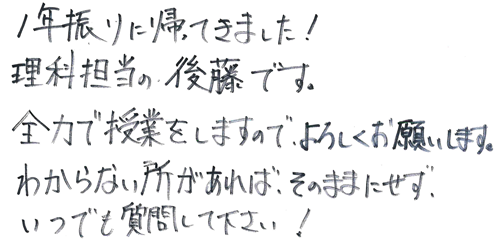 1年振りに帰ってきました！
理科担当の後藤です。
全力で授業をしますので、よろしくお願いします。
わからない所があれば、そのままにせず、
いつでも質問して下さい！